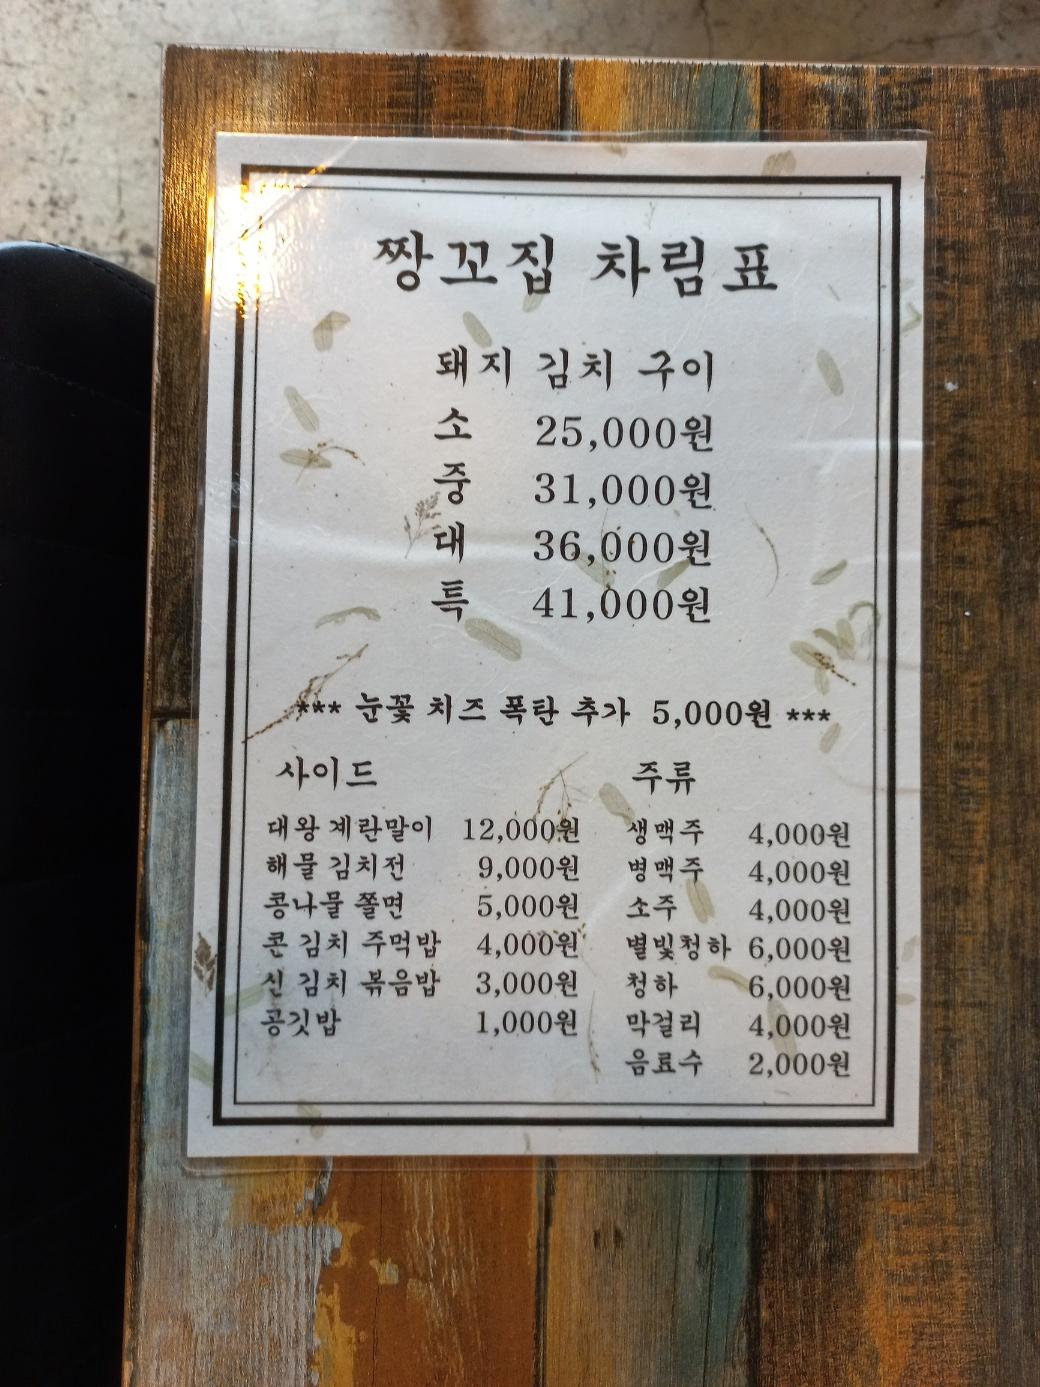 짱꼬집 차림표
돼지 김치 구이
소 25,000원
중 31,000원
대 36,000원
특 41,000원
*** 눈꽃 치즈 폭탄 추가 5,000원 ***
사이드
대왕 계란말이 12,000원
해물 김치전 9,000원
콩나물 쫄면 5,000원
콘 김치 주먹밥 4,000원
신 김치 볶음밥 3,000원
공깃밥 1,000원
주류
생맥주 4,000원
병맥주 4,000원
소주 4,000원
별빛청하 6,000원
청하 6,000원
막걸리 4,000원
음료수 2,000원